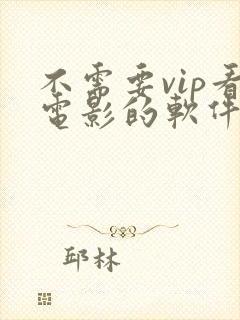 不需要vip看
電影的軟件
邱林